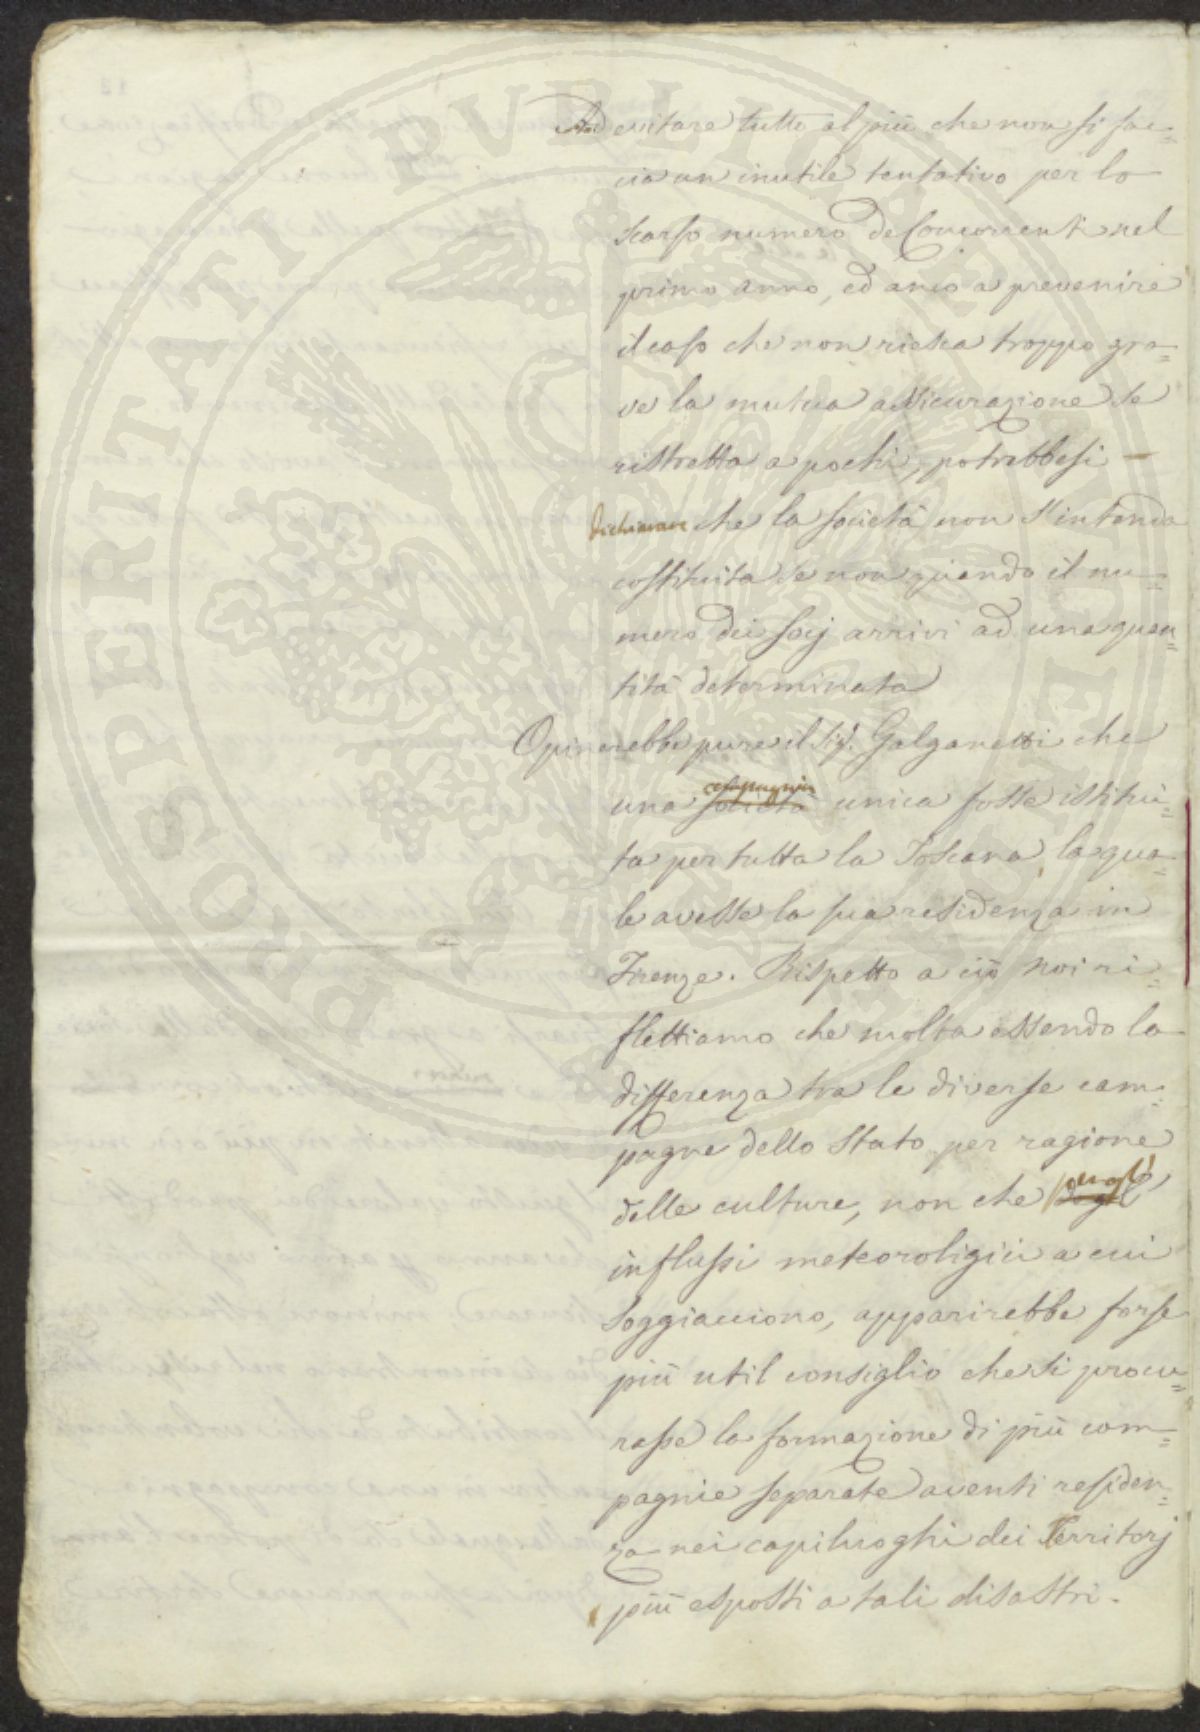 Ad evitare tutto al più che non si fac=
cia un inutile tentativo per lo
scarso numero de Concorrenti nel
primo anno, ed anco a prevenire
il caso che non riesca troppo gra=
ve la mutua assicurazione se
ristretta a pochi, potrebbesi —
dichiarare che la società non s'intenda
costituita se non quando il nu=
mero dei socj arrivi ad una quan=
tità determinata
Opinerebbe pure il Sig. Galganetti che
compagnia
una società unica fosse istitui=
ta per tutta la Toscana, la qua=
le avesse la sua residenza in
Firenze. Rispetto a ciò noi ri=
flettiamo che molta essendo la
differenza tra le diverse cam=
pagne dello Stato per ragione
pergl'
delle culture, non che degl'
influssi meteoroligici a cui
soggiacciono, apparirebbe forse
più util consiglio che si procu=
rasse la formazione di più com=
pagnie separate aventi residen=
za nei capiluoghi dei Territorj
più esposti a tali disastri.
PROSPERITATI PVBLICAE AVGENDAE